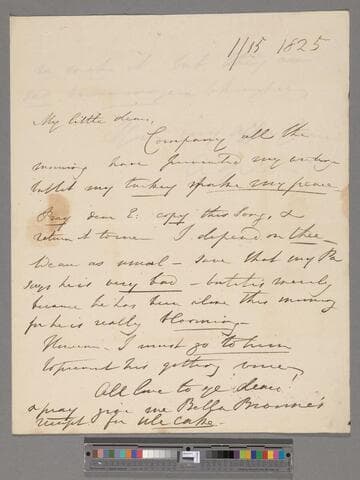 1/15 1825
My little dear,
Company all the
morning have prevented my writing
but let my turkey speake my peace
Pray dear E: copy this Song, &
return it to me I depend on thee
We are as usual – save that my Pa
says he is very bad – but it is merely
because he has been alone this morning
for he is really blooming
I must go to him
to prevent his getting worse
All love to ye dear!
& pray give me Bella Browne's
receipt for cake.